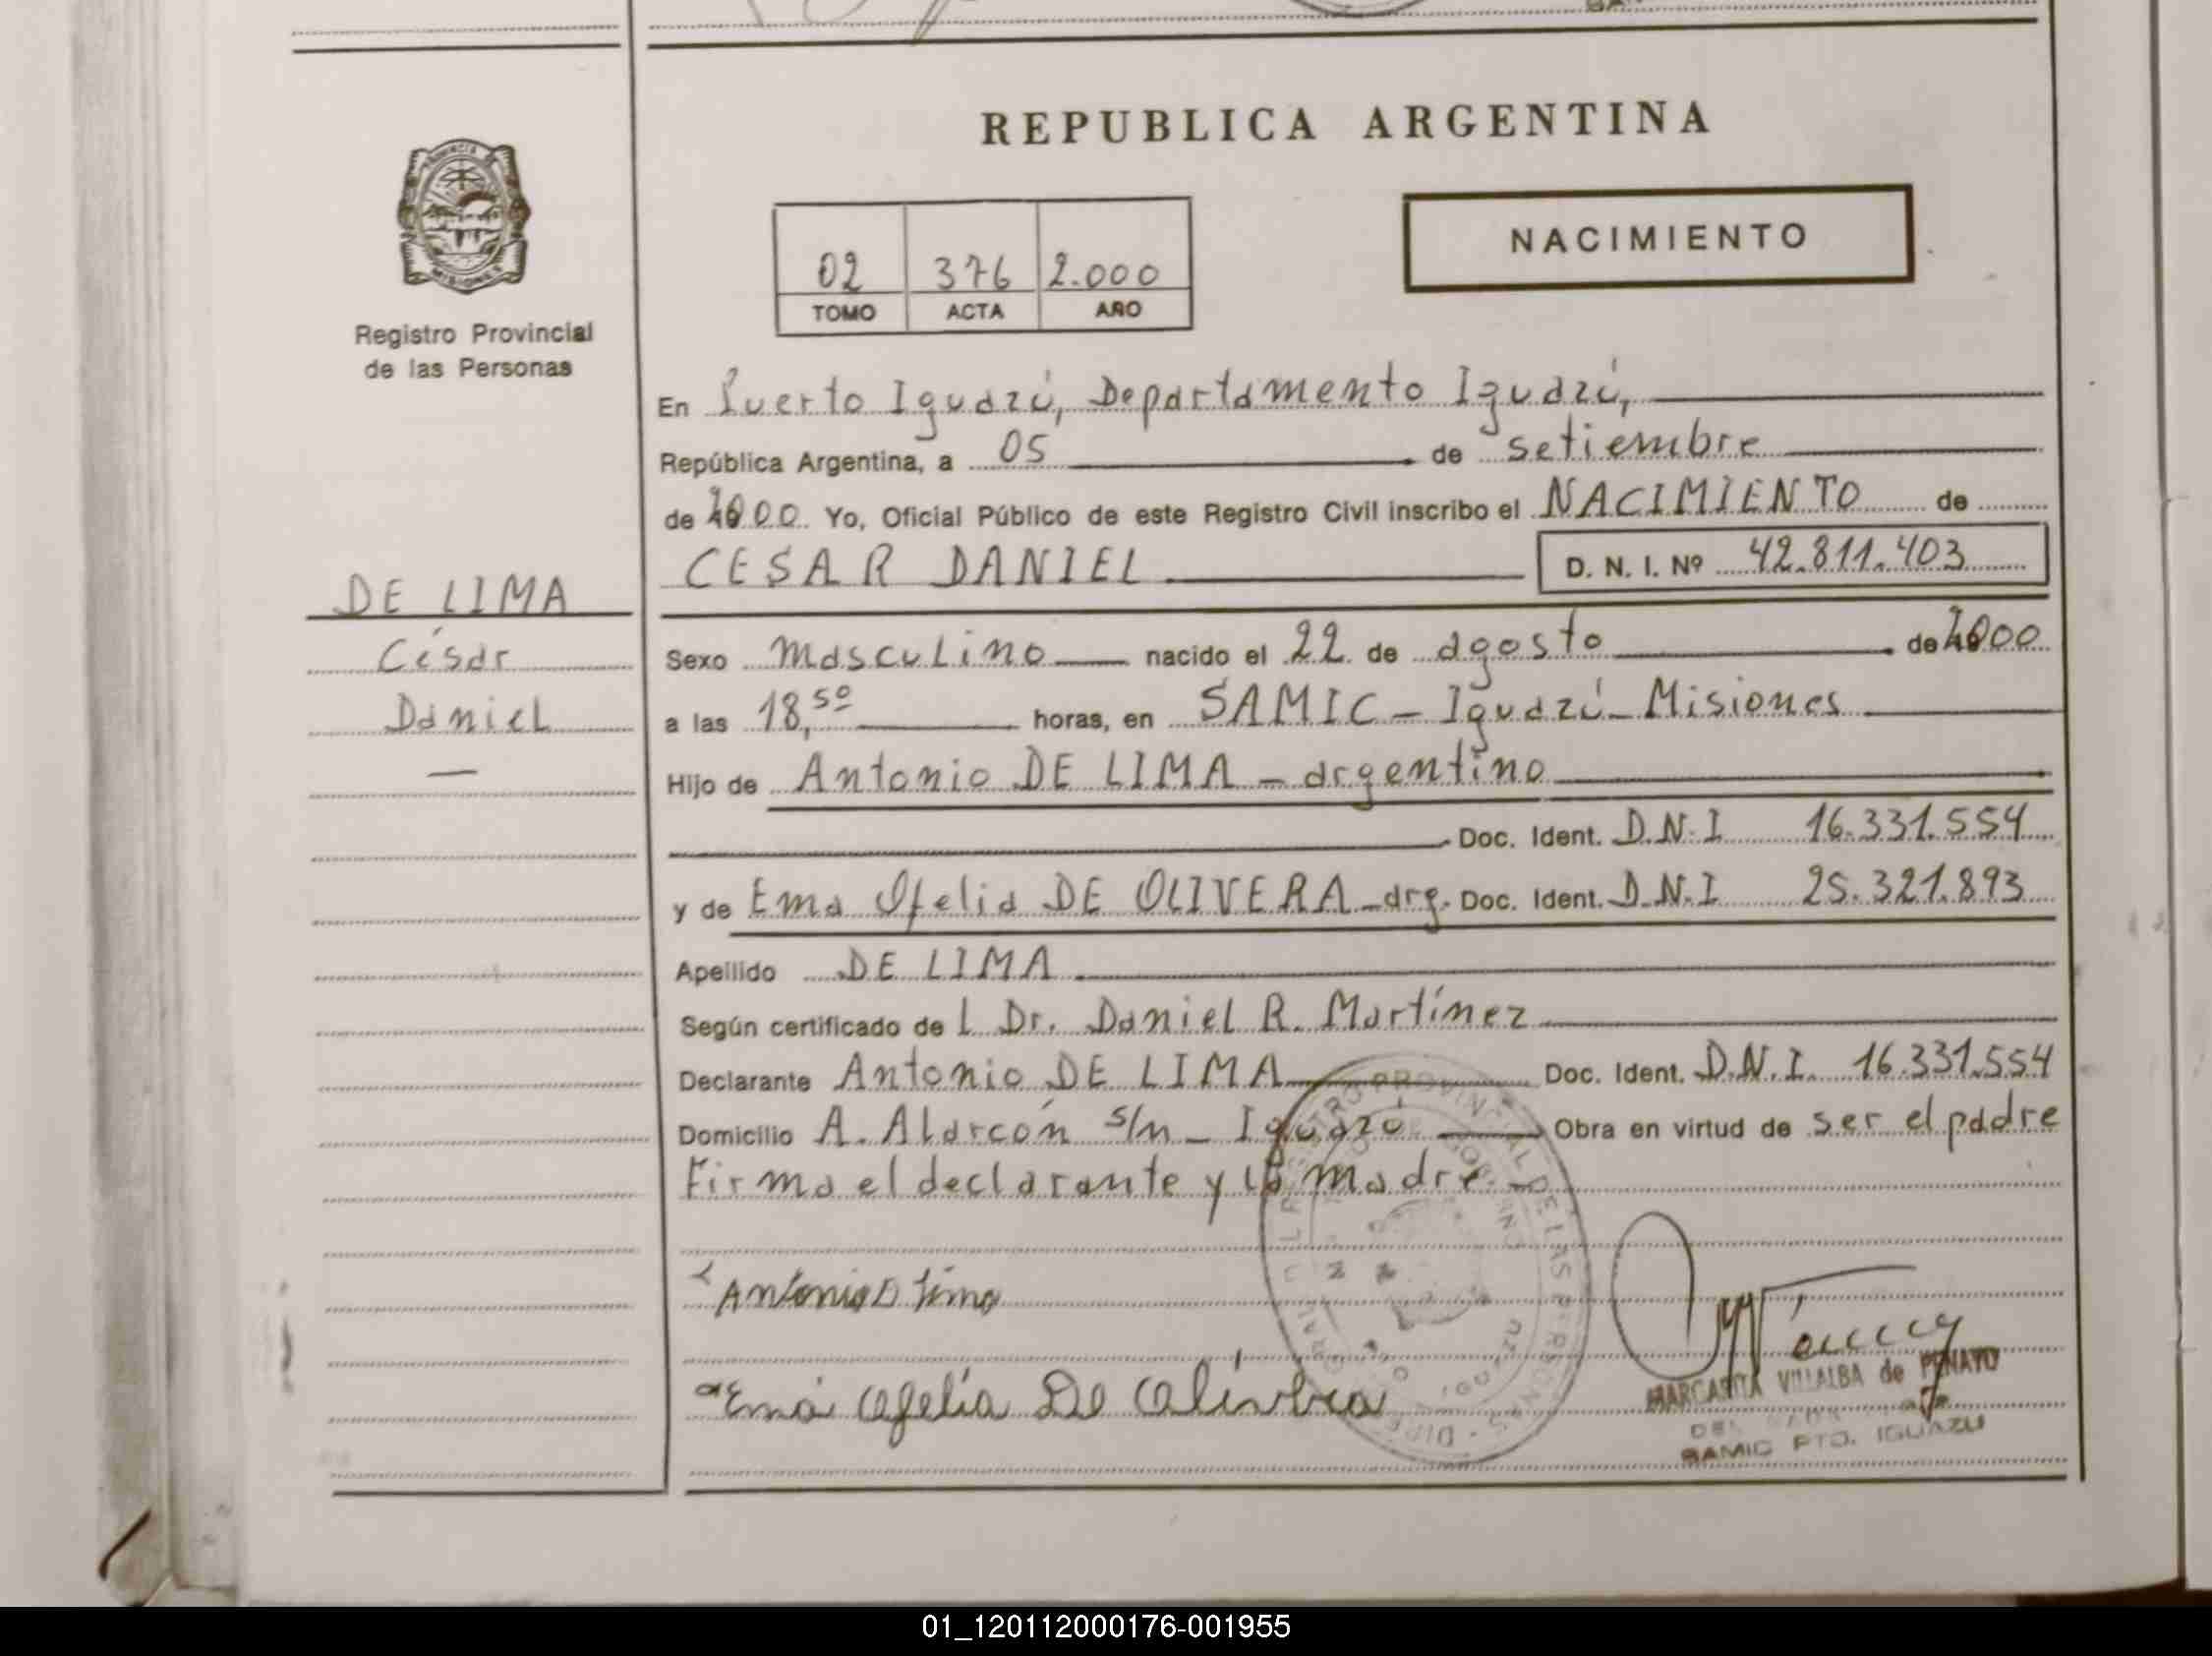 REPUBLICA ARGENTINA
PROVINCIA DE
MISIONES
Registro Provincial
de las Personas
02 376 2.000
TOMO ACTA AÑO
NACIMIENTO
En Puerto Iguazú, Departamento Iguazú,
República Argentina, a 05 de setiembre
de 2000 Yo, Oficial Público de este Registro Civil inscribo el NACIMIENTO de
CESAR DANIEL D. N. I. Nº 42.811.403
DE LIMA
César
Daniel
Sexo masculino nacido el 22 de agosto de 2000
a las 18,50 horas, en SAMIC - Iguazú - Misiones
Hijo de Antonio DE LIMA - argentino
Doc. Ident. D.N.I 16.331.554
y de Ema Ofelia DE OLIVERA - arg. Doc. Ident. D.N.I 25.321.893
Apellido DE LIMA
Según certificado de l Dr. Daniel R. Martínez
Declarante Antonio DE LIMA Doc. Ident. D.N.I. 16.331.554
Domicilio A. Alarcón s/n - Iguazú Obra en virtud de ser el padre
Firma el declarante y la madre
Antonio D Lima
Ema Ofelia De Oliveira
MARGARITA VILLALBA de PENAYO
SAMIC PTO. IGUAZU
01_120112000176-001955